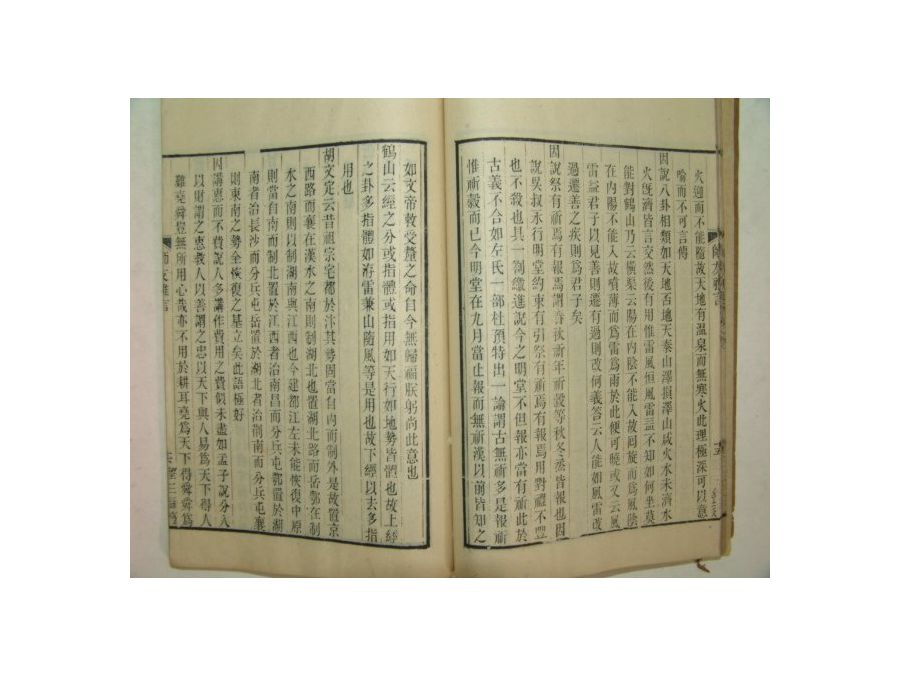 火迎而不能隨故天地有溫泉而無寒火此理極深可以意
喻而不可言傳
因說八卦相類如天地否地天泰山澤損澤山咸火水未濟水
火旣濟皆言交然後有用惟雷風恒風雷益不知如何坐莫
能對鶴山乃云橫渠云陽在內陰不能入故囘旋而爲風陰
在內陽不能入故噴薄而爲雷爲雨於此便可曉或又云風
雷益君子以見善則遷有過則改何義答云人能如風雷改
過遷善之疾則爲君子矣
因說祭有祈焉有報焉謂春秋祈年祈穀等秋冬烝皆報也因
說吳叔永行明堂約束有引祭有祈焉有報焉用對禮不豐
也不殺也具一劄繳進說今之明堂不但報亦當有祈此於
古義不合如左氏一部杜預特出一論謂古無祈多是報祈
惟祈穀而已今明堂在九月當止報而無祈漢以前皆知之
如文帝敕受釐之命自今無歸福朕躬尚此意也
鶴山云經之分或指體或指用如天行如地勢皆體也故上經
之卦多指體如洊雷兼山隨風等是用也故下經以去多指
用也
胡文定云昔祖宗宅都於汴其勢固當自內而制外是故置京
西路而襄在漢水之南則制湖北也置湖北路而岳鄂在制
水之南則以制湖南與江西也今建都江左未能恢復中原
則當自南而制北置於江西者治南昌而分兵屯鄂置於湖
南者治長沙而分兵屯岳置於湖北者治荆南而分兵屯襄
則東南之勢全恢復之基立矣此語極好
因講惠而不費說人多講作費用之費似未盡如孟子說分人
以財謂之惠教人以善謂之忠以天下與人易爲天下得人
難堯舜豈無所用心哉亦不用於耕耳堯爲天下得舜舜爲
師友雅言